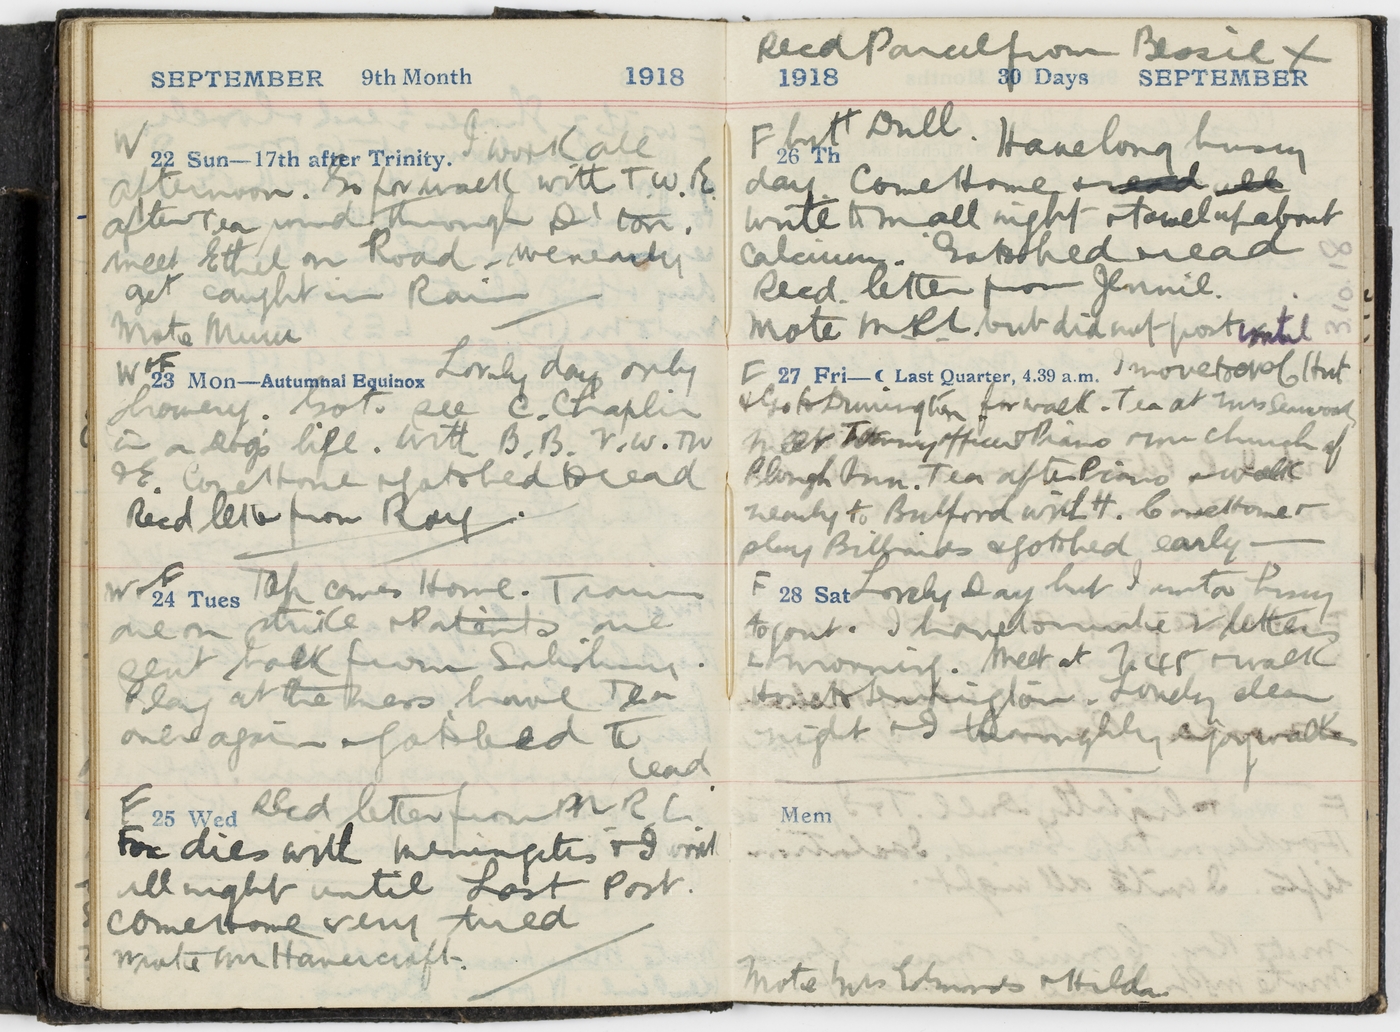 SEPTEMBER 9th Month 1918
W
22 Sun—17th after Trinity. I work all
afternoon. Go for walk with T.W.E.
after Tea, wind through D
meet Ethel on Road. we nearly
get caught in Rain
Wrote Mum
W F
23 Mon—Autumnal Equinox Lovely day only
showery. Go to see C. Chaplin
in a Dog's life. With B.B. V.W. M
& E. Come Home & got to bed & read
Recd letter from Ray.
W F
24 Tues Tap comes Home. Trains
are on strike & Patients are
sent back from Salisbury.
Play at the mess, have Tea
over again & got to bed to
read
F
25 Wed Recd letter from M R L.
Fox dies with meningitis & I
all night until Last Post.
Come Home very tired
wrote Mr Havercroft.
Recd Parcel from Bessie X
1918 30 Days SEPTEMBER
F
26 Th Drill. Have long busy
day. Come Home & read
write to M all night & about
Calcium. Got to bed & read
Recd. letter from Jennie.
Wrote M.R.L. but did not post until
F
27 Fri— Last Quarter, 4.39 a.m. I move to Hut
& Go to Durrington for walk. Tea at Mrs
Piano & church of
Plough Inn. Tea after Piano & walk
nearly to Bulford with H. Come Home &
play Billiards & got to bed early
F
28 Sat Lovely Day but I am too busy
to go out. I have to write 2 letters
in morning. Meet at 7.45 & walk
Home to Durrington. Lovely clear
night & I thoroughly enjoy walk
Mem
Wrote Mrs Edmonds & Hilda